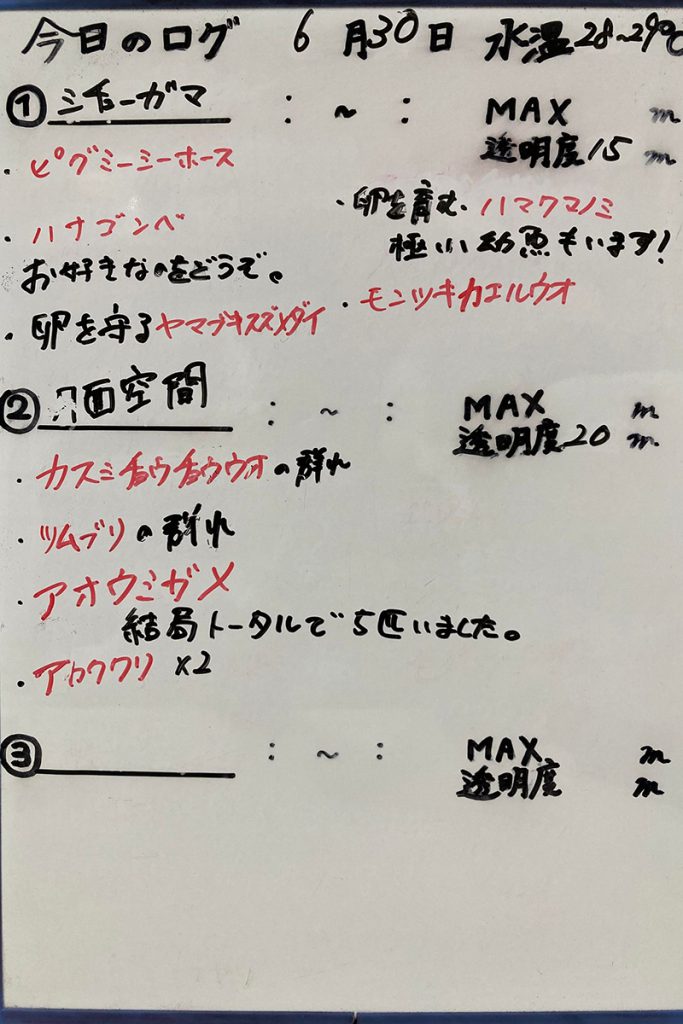 今日のログ 6月30日 水温28~29℃
① ミ舌ーガマ : ~ : MAX m
透明度15 m
・ピグミーシーホース
・ハナゴンベ
お好きなのをどうぞ。
・卵を守るヤマブキスズメダイ
・卵を育む・ハマクマノミ
極小幼魚もいます!
・モンツキカエルウオ
② 面空間 : ~ : MAX m
透明度20 m
・カスミチョウチョウウオの群れ
・ツムブリの群れ
・アオウミガメ
結局トータルで5匹いました。
・アカククリ x2
③ : ~ : MAX m
透明度 m